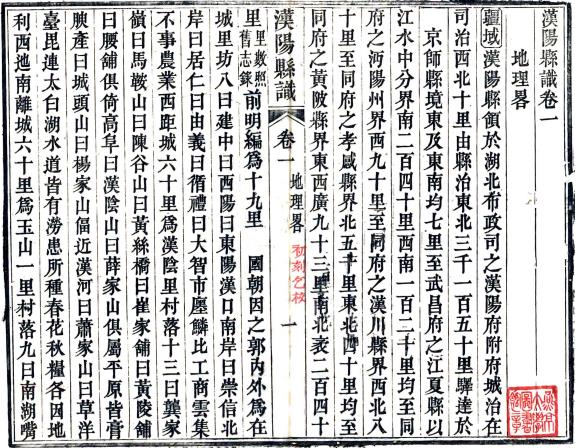 漢陽縣識卷一
地理畧
疆域漢陽縣領於湖北布政司之漢陽府附府城治在
司治西北十里由縣治東北三千一百五十里驛達於
京師縣境東及東南均七里至武昌府之江夏縣以
江水中分界南二百四十里西南一百二十里均至同
府之沔陽州界西九十里至同府之漢川縣界西北八
十里至同府之孝感縣界北五十里東北四十里均至
同府之黃陂縣界東西廣九十三里南北袤二百四十
漢陽縣識
卷一
地理畧
初刻乞校
一
里里數照舊志錄前明編爲十九里 國朝因之郭內外爲在
城里坊八曰建中曰西陽曰東陽漢口南岸曰崇信北
岸曰居仁曰由義曰循禮曰大智市廛鱗比工商雲集
不事農業西距城六十里爲漢陰里村落十三曰龔家
嶺曰馬鞍山曰陳谷山曰黃絲橋曰崔家舖曰黃陵舖
曰腰舖曰倚高阜曰漢陰山曰薛家山俱屬平原皆膏
腴產曰城頭山曰楊家山偪近漢河曰蕭家山曰草洋
臺毘連太白湖水道皆有澇患所種春花秋糧各因地
利西迤南離城六十里爲玉山一里村落九曰南湖嘴